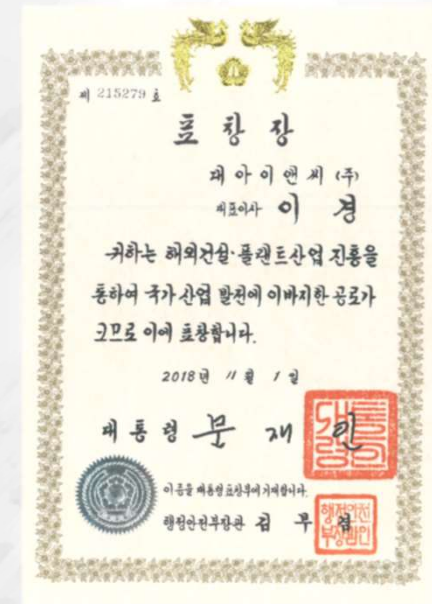 제 215279 호
표창장
대아이앤씨 (주)
대표이사 이 경
귀하는 해외건설·플랜트산업 진흥을
통하여 국가 산업 발전에 이바지한 공로가
크므로 이에 표창합니다.
2018년 11월 1일
대통령 문 재 인
이 증을 대통령표창부에 기재합니다.
행정안전부장관 김 부 겸